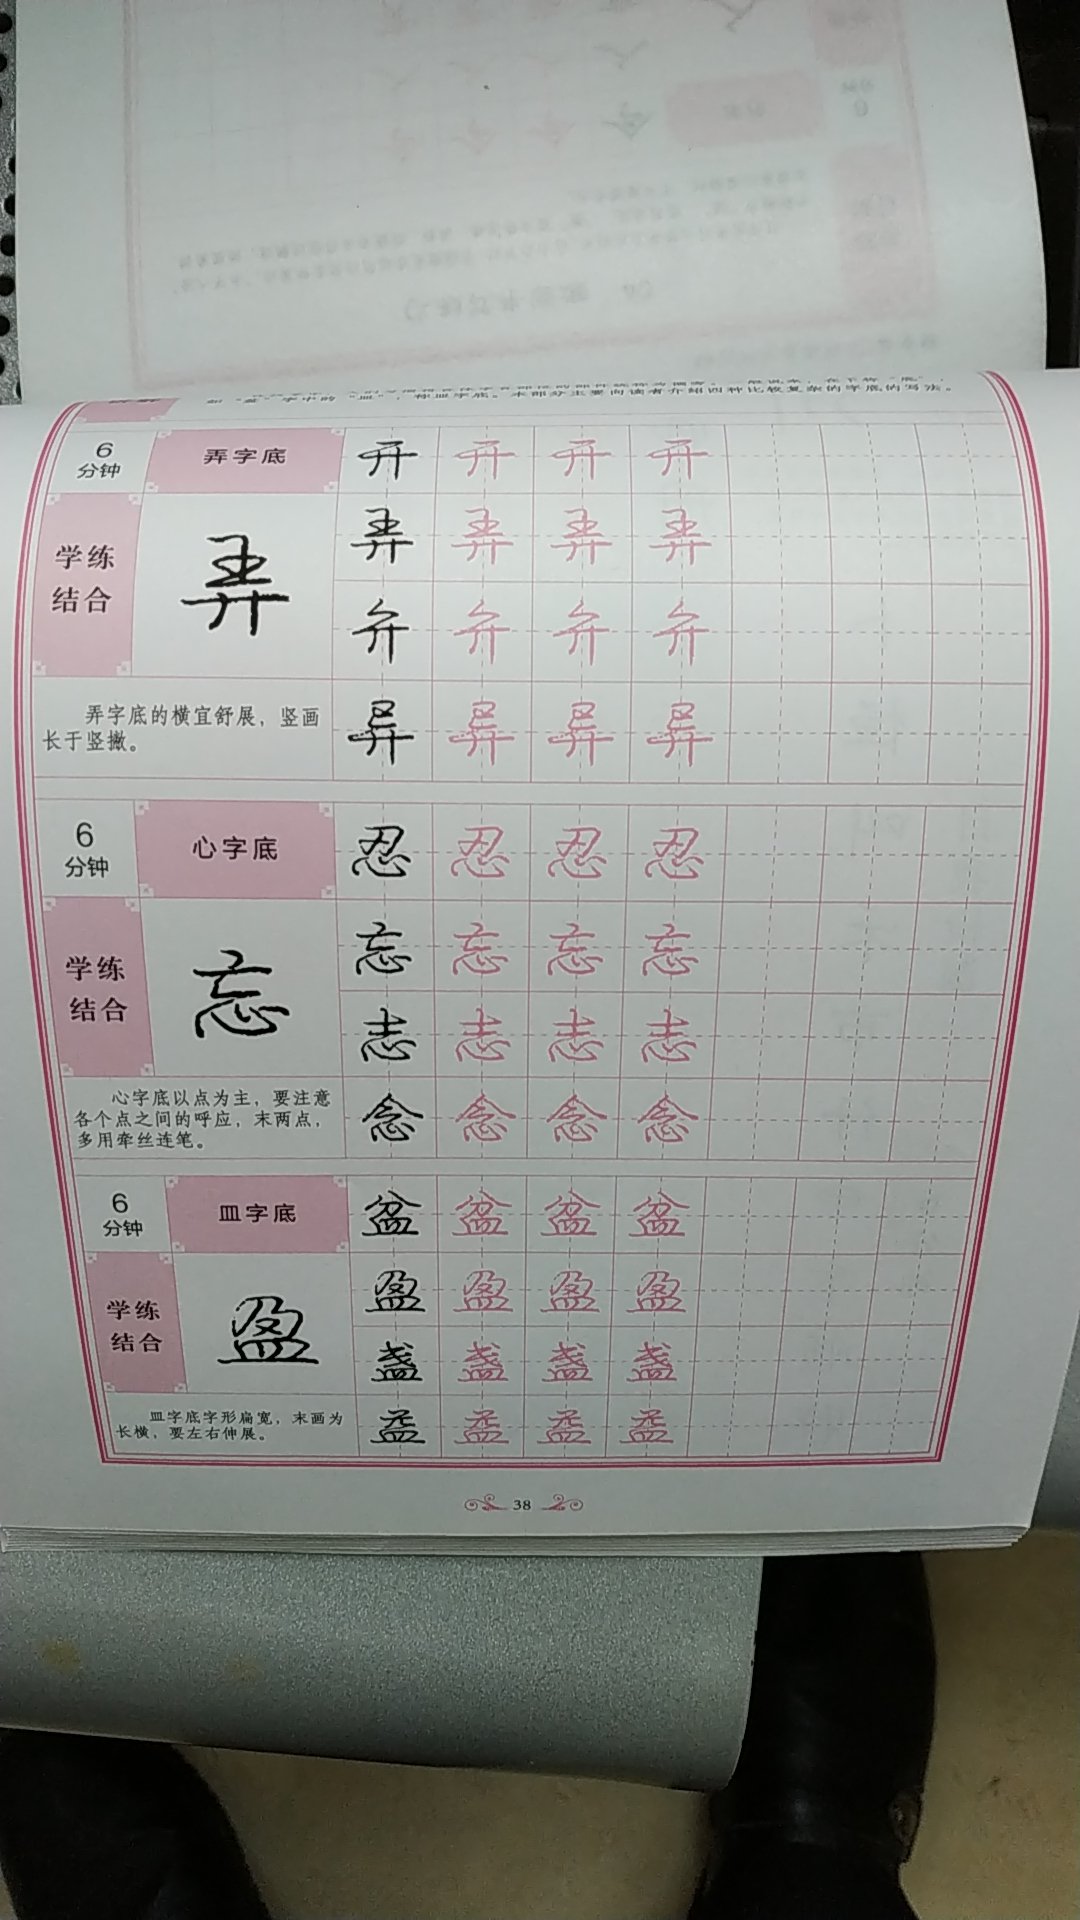 如“盔”字中的“皿”，称皿字底。本部分主要向读者介绍四种比较复杂的字底的写法。
6
分钟
弄字底
开 开 开 开
学练
结合
弄
弄 弄 弄 弄
弁 弁 弁 弁
异 异 异 异
弄字底的横宜舒展，竖画
长于竖撇。
6
分钟
心字底
忍 忍 忍 忍
学练
结合
忘
忘 忘 忘 忘
志 志 志 志
念 念 念 念
心字底以点为主，要注意
各个点之间的呼应，末两点，
多用牵丝连笔。
6
分钟
皿字底
盆 盆 盆 盆
学练
结合
盈
盈 盈 盈 盈
盏 盏 盏 盏
孟 孟 孟 孟
皿字底字形扁宽，末画为
长横，要左右伸展。
38